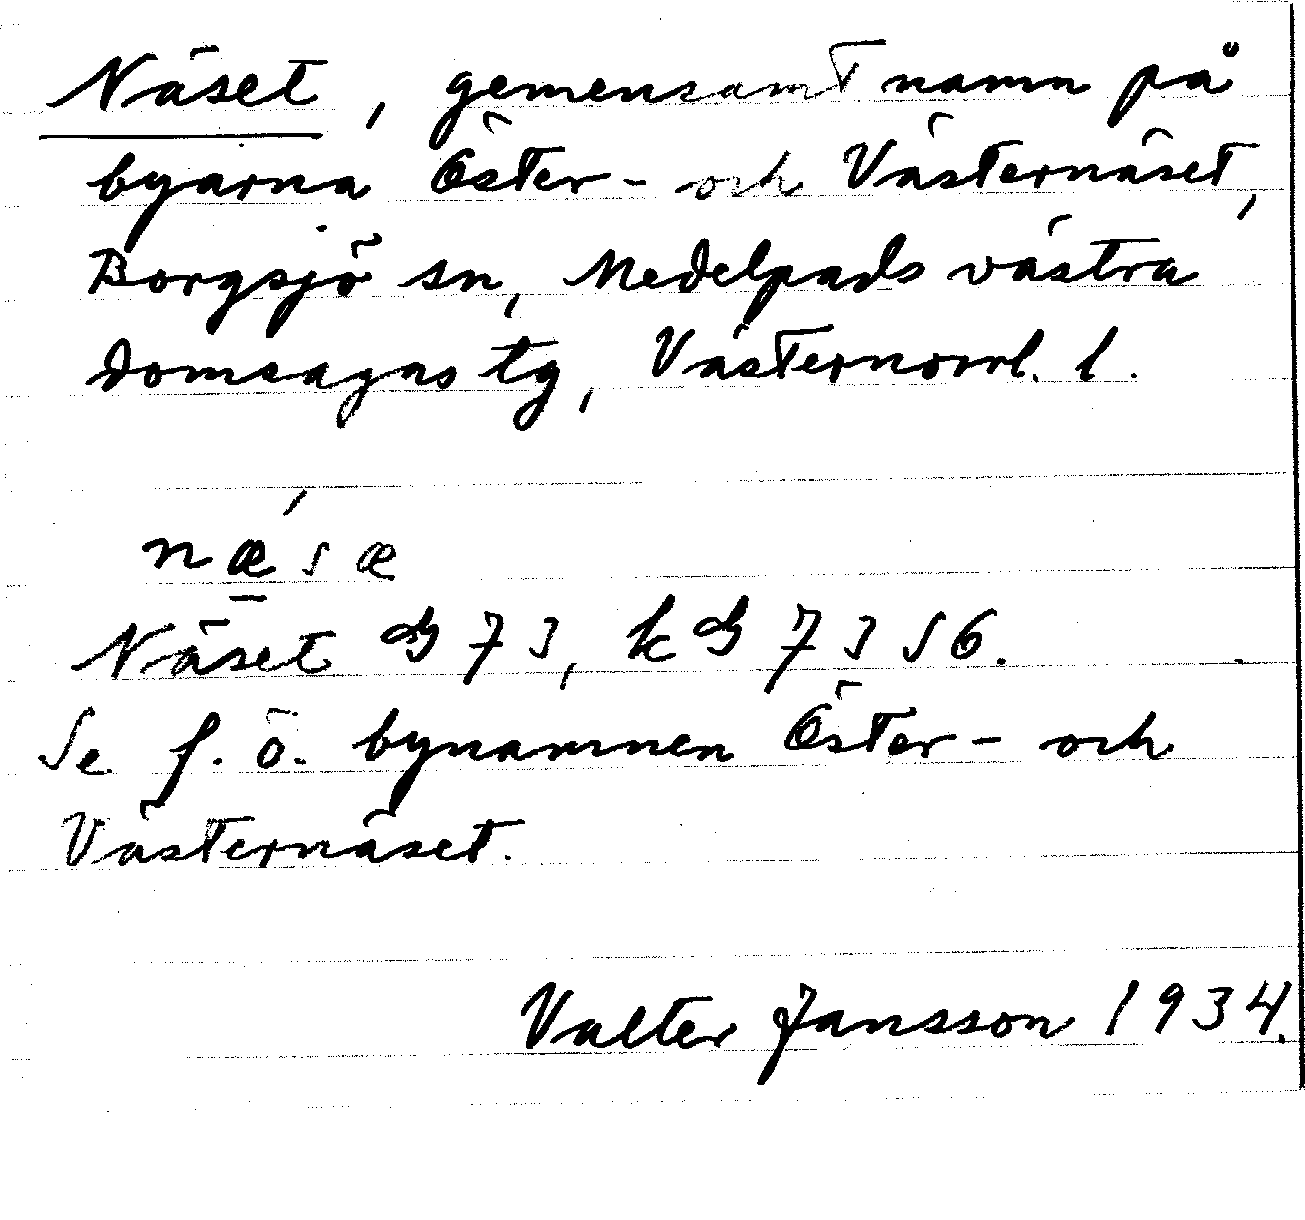 Näset, gemensamt namn på
byarna Öster- och Västernäset,
Borgsjö sn, Medelpads västra
domsagas tg, Västernorrl. l.
næ̲´sæ
Näset GS 73, kGS 73 S6.
Se f. ö. bynamnen Öster- och
Västernäset.
Valter Jansson 1934.